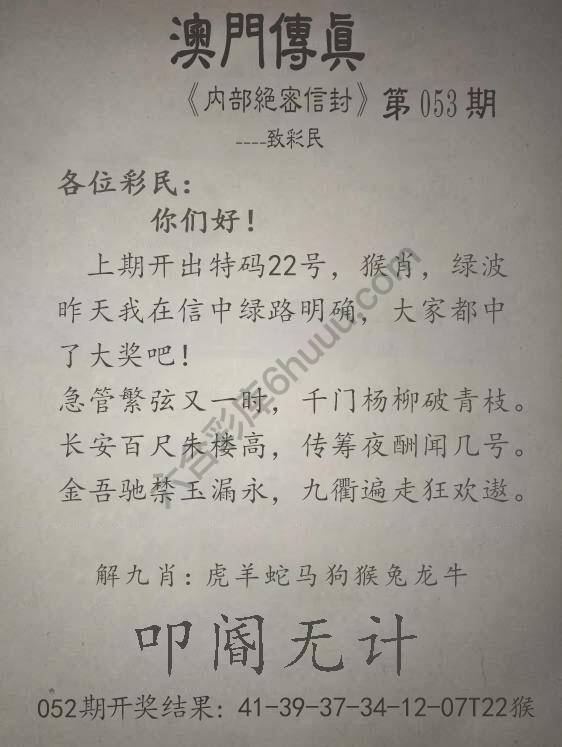 澳門傳眞
《内部絕密信封》第053期
----致彩民
各位彩民：
你们好！
上期开出特码22号，猴肖，绿波
昨天我在信中绿路明确，大家都中
了大奖吧！
急管繁弦又一时，千门杨柳破青枝。
长安百尺朱楼高，传筹夜酬闻几号。
金吾驰禁玉漏永，九衢遍走狂欢遨。
解九肖：虎羊蛇马狗猴兔龙牛
叩阍无计
052期开奖结果：41-39-37-34-12-07T22猴
六合彩库6huuu.com